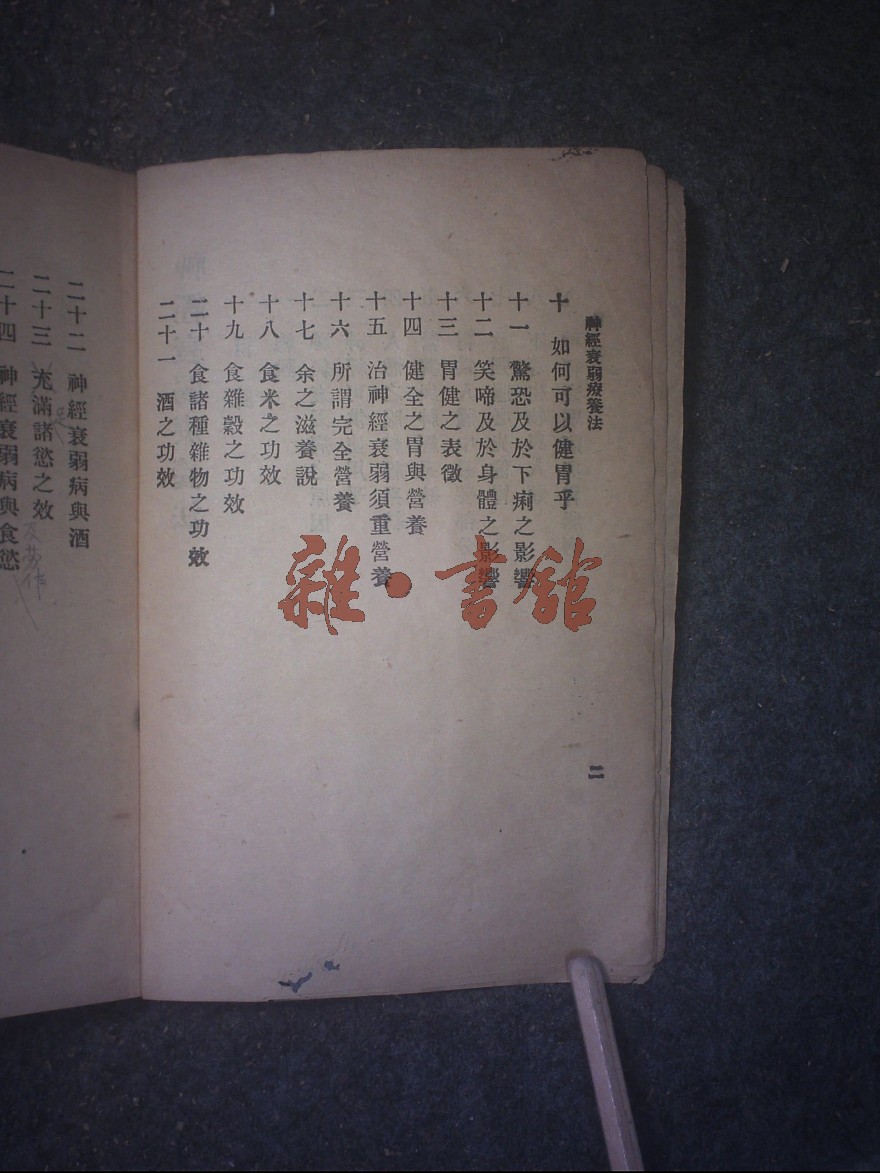 神經衰弱療養法
十 如何可以健胃乎
十一 驚恐及於下痢之影響
十二 笑啼及於身體之影響
十三 胃健之表徵
十四 健全之胃與營養
十五 治神經衰弱須重營養
十六 所謂完全營養
十七 余之滋養說
十八 食米之功效
十九 食雜穀之功效
二十 食諸種雜物之功效
二十一 酒之功效
二
二十二 神經衰弱病與酒
二十三 充滿諸慾之效
二十四 神經衰弱病與食慾
雜·書館